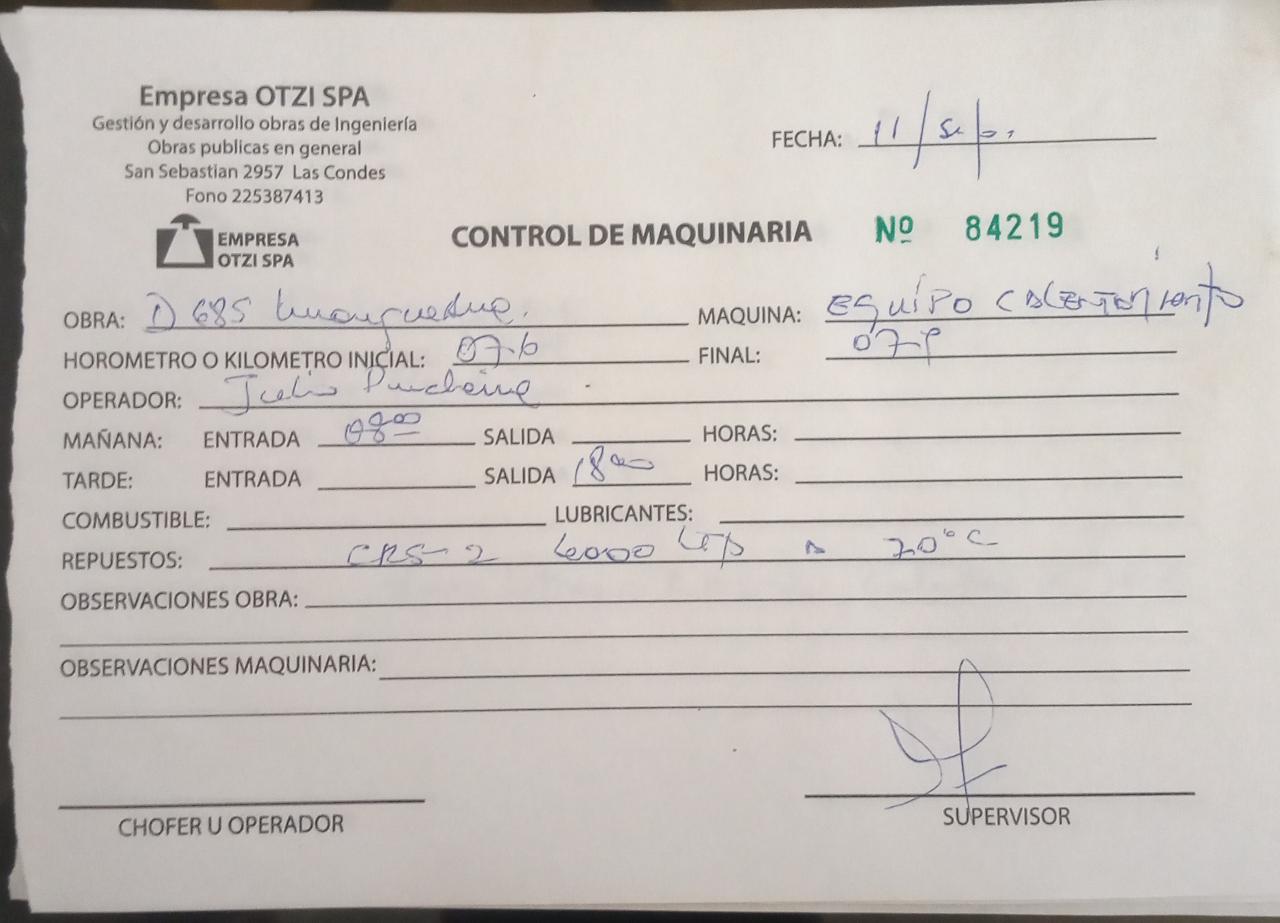 Empresa OTZI SPA
Gestión y desarrollo obras de Ingeniería
Obras publicas en general
San Sebastian 2957 Las Condes
Fono 225387413
FECHA: 11/Sep.
EMPRESA
OTZI SPA
CONTROL DE MAQUINARIA Nº 84219
OBRA: D 685 MAQUINA: EQUIPO CALENTAMIENTO
HOROMETRO O KILOMETRO INICIAL: FINAL:
OPERADOR: Julio
MAÑANA: ENTRADA 08:00 SALIDA HORAS:
TARDE: ENTRADA SALIDA 18:00 HORAS:
COMBUSTIBLE: LUBRICANTES:
REPUESTOS: CRS-2 6000 LTS A 70°C
OBSERVACIONES OBRA:
OBSERVACIONES MAQUINARIA:
CHOFER U OPERADOR SUPERVISOR